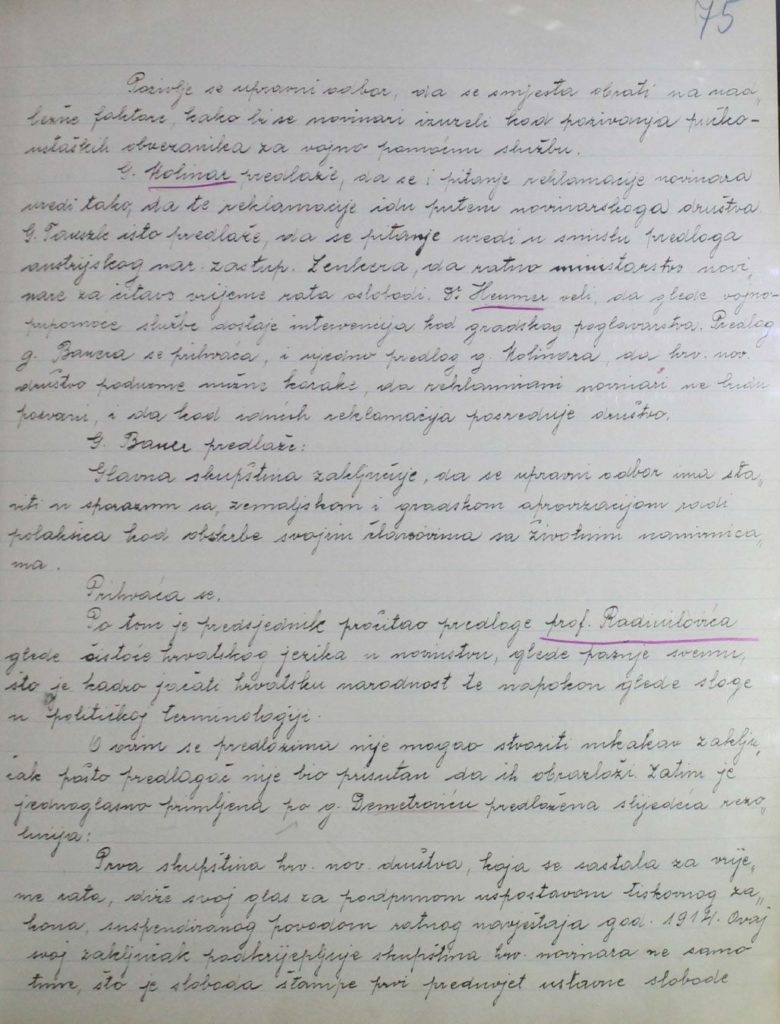 75
Pozivlje se upravni odbor, da se smjesta obrati na nad„
ležne faktore, kako bi se novinari izuzeli kod pozivanja pučko-
ustaških obvezanika za vojno pomoćnu službu.
G. Molinar predlaže, da se i pitanje reklamacije novinara
uredi tako, da te reklamacije idu putem novinarskoga društva.
G. Tauszk isto predlaže, da se pitanje uredi u smislu predloga
austrijskog nar. zastup. Zenkera, da ratno ministarstvo novi„
nare za čitavo vrijeme rata oslobodi. Dr. Heumer veli, da glede vojno-
pripomoćne službe dostaje intervencija kod gradskog poglavarstva. Predlog
g. Bauera se prihvaća, i ujedno predlog g. Molinara, da hrv. nov.
društvo poduzme nužne korake, da reklamirani novinari ne budu
pozvani, i da kod idućih reklamacija posreduje društvo.
G. Bauer predlaže:
Glavna skupština zaključuje, da se upravni odbor ima sta„
viti u sporazum sa zemaljskom i gradskom aprovizacijom radi
polakšica kod obskrbe svojim članovima sa životnim namirnica„
ma.
Prihvaća se.
Po tom je predsjednik pročitao predloge prof. Radivilovića
glede čistoće hrvatskog jezika u novinstvu, glede pažnje svemu,
što je kadro jačati hrvatsku narodnost te napokon glede sloge
u političkoj terminologiji.
O ovim se predlozima nije mogao stvoriti nikakav zaklju„
čak pošto predlagač nije bio prisutan da ih obrazloži. Zatim je
jednoglasno primljena po g. Demetroviću predložena slijedeća rezo„
lucija:
Prva skupština hrv. nov. društva, koja se sastala za vrije„
me rata, diže svoj glas za podpunom uspostavom tiskovnog za„
kona, suspendiranog povodom ratnog navještaja god. 1914. Ovaj
svoj zaključak podkrijepljuje skupština hrv. novinara ne samo
time, što je sloboda štampe prvi preduvjet ustavne slobode